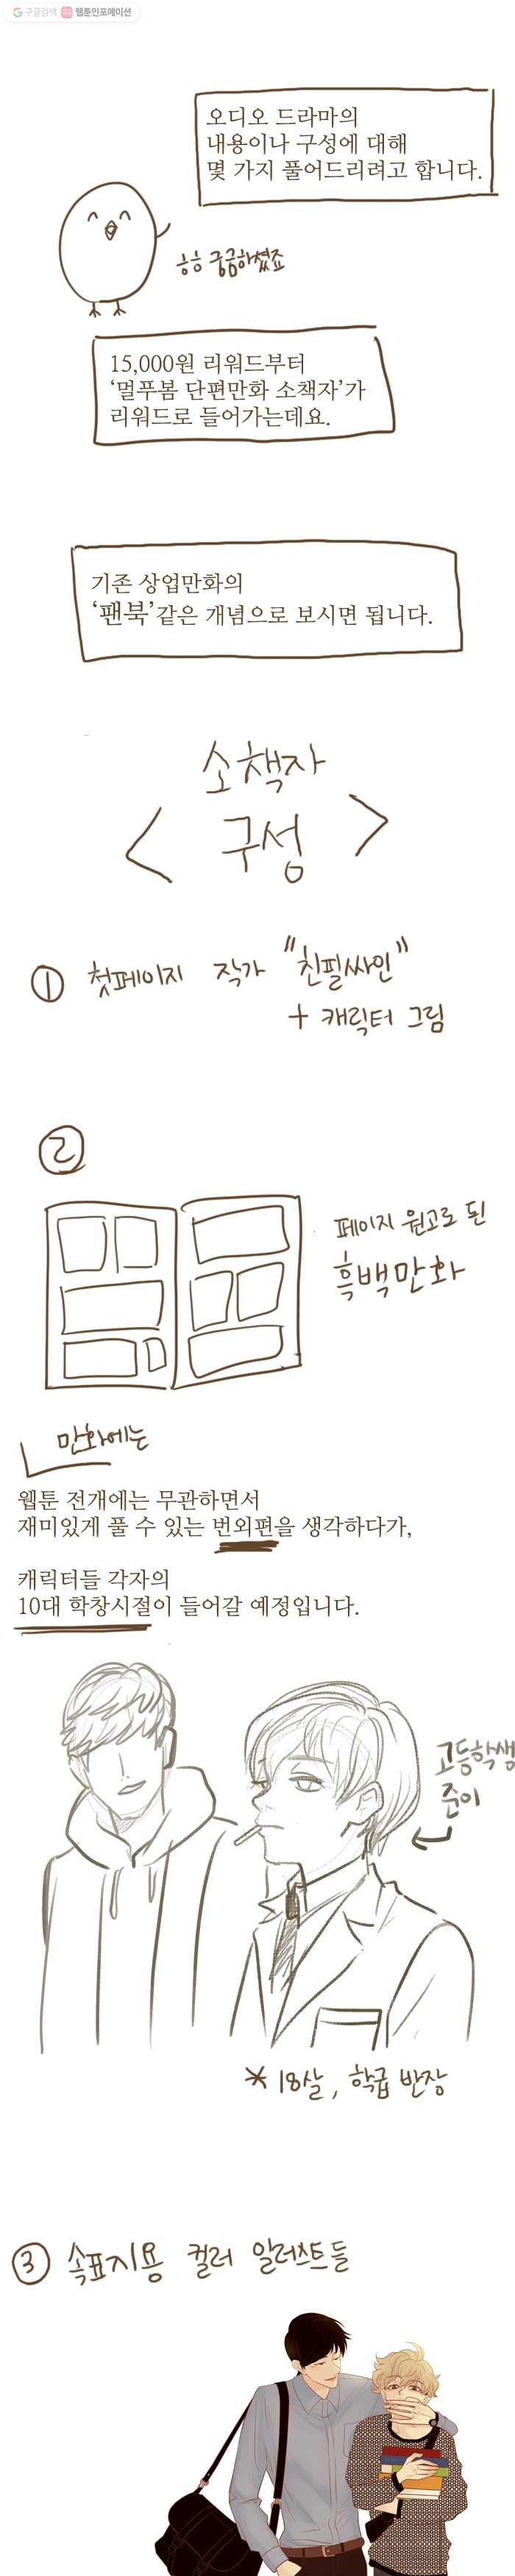 구글검색 웹툰인포메이션
오디오 드라마의
내용이나 구성에 대해
몇 가지 풀어드리려고 합니다.
ㅎㅎ 궁금하셨죠
15,000원 리워드부터
‘멀푸봄 단편만화 소책자’가
리워드로 들어가는데요.
기존 상업만화의
‘팬북’같은 개념으로 보시면 됩니다.
소책자
< 구성 >
① 첫페이지 작가 "친필싸인"
+ 캐릭터 그림
②
페이지 원고로 된
흑백만화
만화에는
웹툰 전개에는 무관하면서
재미있게 풀 수 있는 번외편을 생각하다가,
캐릭터들 각자의
10대 학창시절이 들어갈 예정입니다.
고등학생
준이
* 18살, 학급 반장
③ 속표지용 컬러 일러스트들